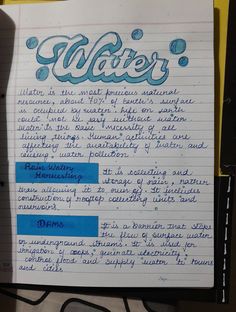 Water
Water is the most precious natural
resource, about 70% of Earth's surface
is occupied by water. Life on earth
could not be possible without water
Water is the basic necessity of all
living things. Human activities are
affecting the availability of water and
causing water pollution.
Rain Water
Harvesting
It is collecting and
storage of rain, rather
than allowing it to run of. It includes
construction of rooftop collecting units and
reservoirs.
DAMS
It is a barrier that stops
the flow of surface water
or underground streams. It is used for
irrigation of crops, generate electricity,
control flood and supply water to towns
and cities